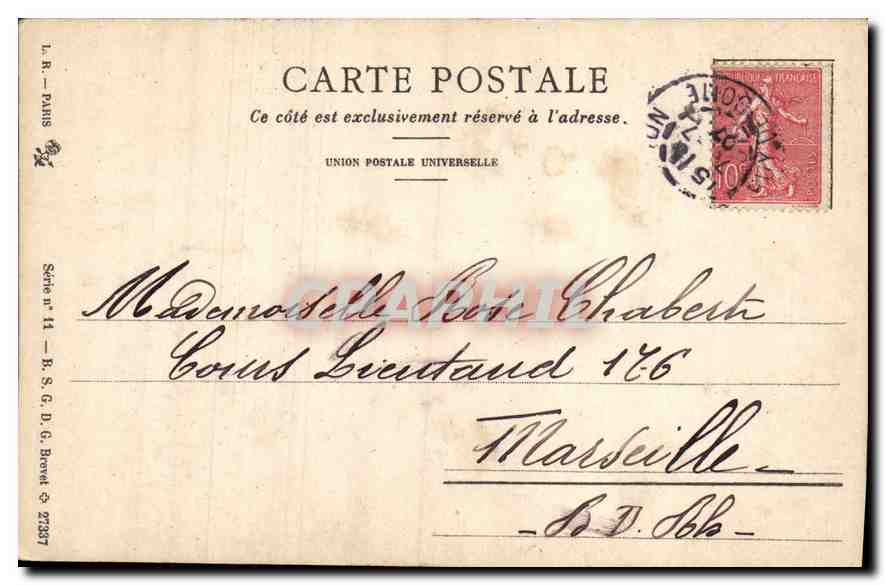 CARTE POSTALE
Ce côté est exclusivement réservé à l'adresse.
UNION POSTALE UNIVERSELLE
RÉPUBLIQUE FRANÇAISE
10
Mademoiselle Rose Chabert
Cours Lieutaud 176
Marseille
B. D. Rh
L. R. — PARIS
Série n° 11 — B. S. G. D. G. Brevet 27337
CPAPHIL